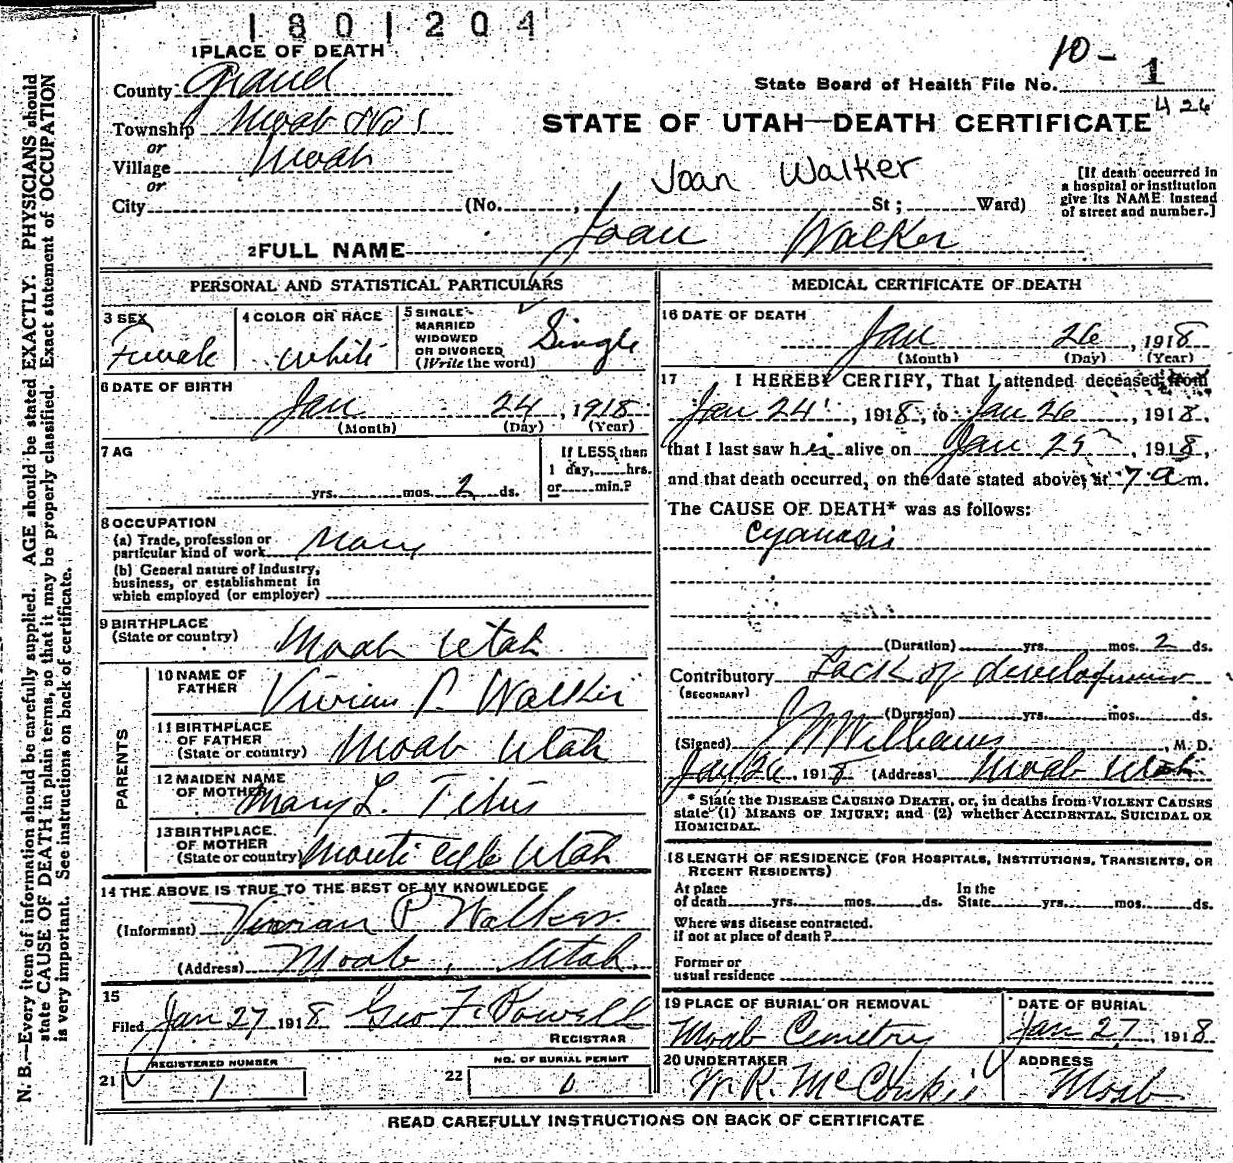 1801204
1 PLACE OF DEATH
County Grand
Township Moab No 1
or
Village Moab
or
City (No. , St; Ward)
10-1
State Board of Health File No.
426
STATE OF UTAH—DEATH CERTIFICATE
Joan Walker
[If death occurred in
a hospital or institution
give its NAME instead
of street and number.]
2 FULL NAME Joan Walker
PERSONAL AND STATISTICAL PARTICULARS
3 SEX
Female
4 COLOR OR RACE
White
5 SINGLE
MARRIED
WIDOWED
OR DIVORCED
(Write the word)
Single
6 DATE OF BIRTH
Jan 24, 1918
(Month) (Day) (Year)
7 AG
yrs. mos. 2 ds.
If LESS than
1 day, hrs.
or min.?
8 OCCUPATION
(a) Trade, profession or
particular kind of work
(b) General nature of Industry,
business, or establishment in
which employed (or employer)
9 BIRTHPLACE
(State or country) Moab Utah
PARENTS
10 NAME OF
FATHER Vivian P. Walker
11 BIRTHPLACE
OF FATHER
(State or country) Moab Utah
12 MAIDEN NAME
OF MOTHER Mary L. Titus
13 BIRTHPLACE
OF MOTHER
(State or country) Monticello Utah
14 THE ABOVE IS TRUE TO THE BEST OF MY KNOWLEDGE
(Informant) Vivian P Walker
(Address) Moab, Utah.
15
Filed Jan 27 1918 Geo F. Powell
REGISTRAR
REGISTERED NUMBER
21 1
NO. OF BURIAL PERMIT
22 1
MEDICAL CERTIFICATE OF DEATH
16 DATE OF DEATH
Jan 26, 1918
(Month) (Day) (Year)
17 I HEREBY CERTIFY, That I attended deceased from
Jan 24, 1918, to Jan 26, 1918,
that I last saw her alive on Jan 25, 1918,
and that death occurred, on the date stated above, at 7 a m.
The CAUSE OF DEATH* was as follows:
Cyanosis
(Duration) yrs. mos. 2 ds.
Contributory Lack of development
(SECONDARY)
(Duration) yrs. mos. ds.
(Signed) J W Williams, M. D.
Jan 26, 1918 (Address) Moab Utah
* State the DISEASE CAUSING DEATH, or, in deaths from VIOLENT CAUSES
state (1) MEANS OF INJURY; and (2) whether ACCIDENTAL, SUICIDAL OR
HOMICIDAL.
18 LENGTH OF RESIDENCE (FOR HOSPITALS, INSTITUTIONS, TRANSIENTS, OR
RECENT RESIDENTS)
At place
of death yrs. mos. ds.
In the
State yrs. mos. ds.
Where was disease contracted.
if not at place of death?
Former or
usual residence
19 PLACE OF BURIAL OR REMOVAL
Moab Cemetry
DATE OF BURIAL
Jan 27, 1918
20 UNDERTAKER
W. R. McConkie
ADDRESS
Moab
READ CAREFULLY INSTRUCTIONS ON BACK OF CERTIFICATE
N. B.—Every item of information should be carefully supplied. AGE should be stated EXACTLY. PHYSICIANS should
state CAUSE OF DEATH in plain terms, so that it may be properly classified. Exact statement of OCCUPATION
is very important. See instructions on back of certificate.